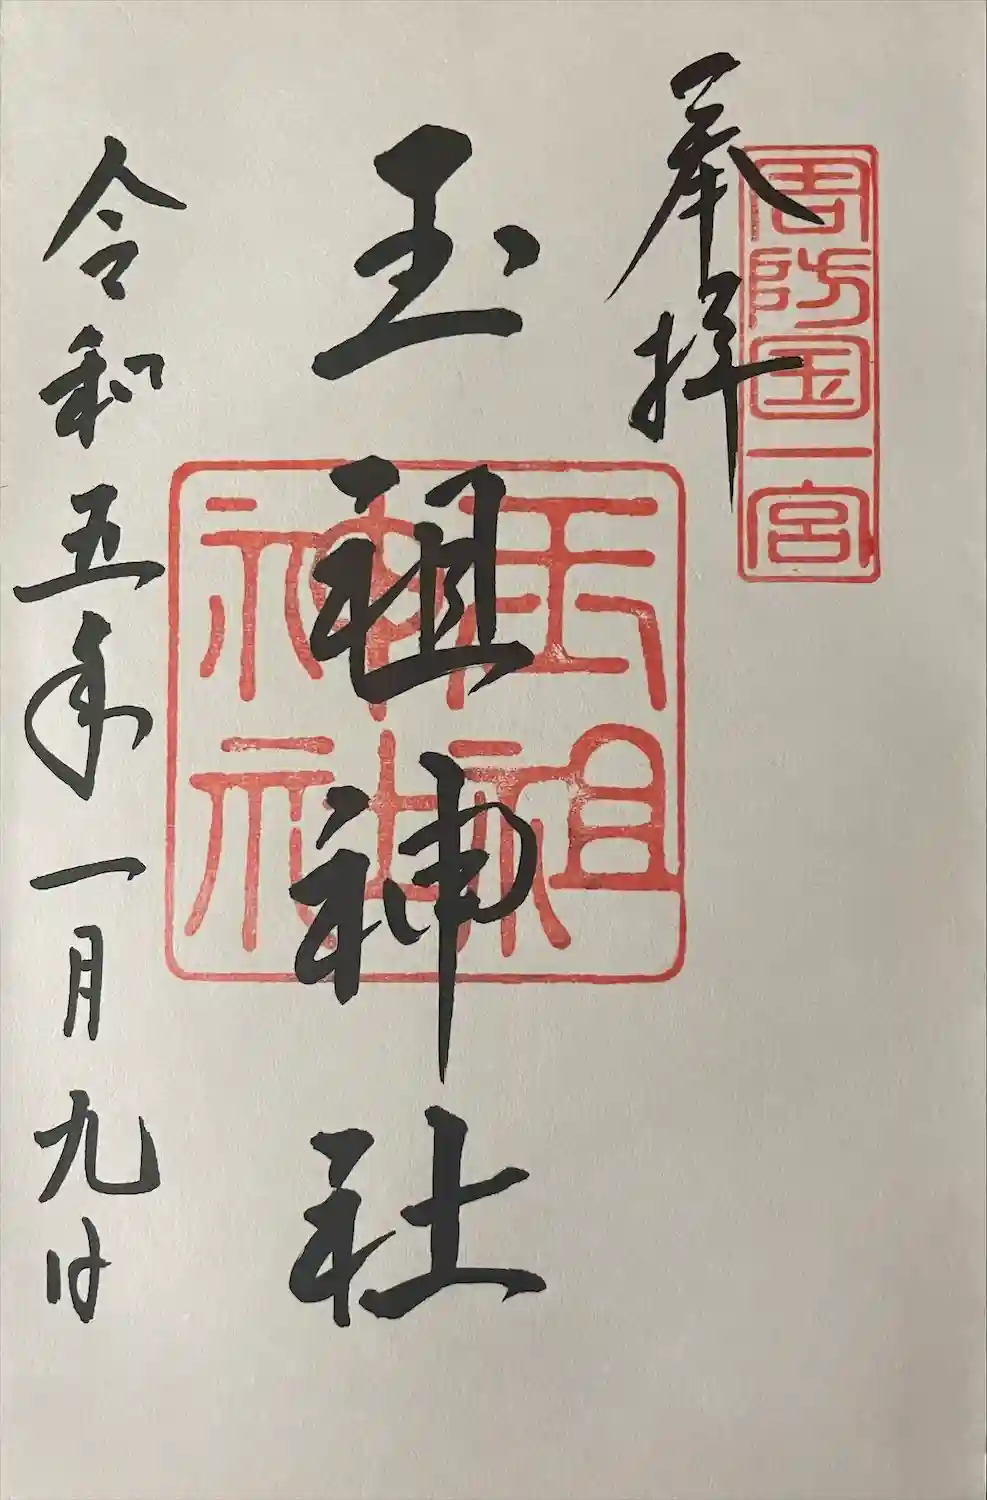 周防国一宮
奉拝
玉祖神社
玉祖神社
令和五年一月九日